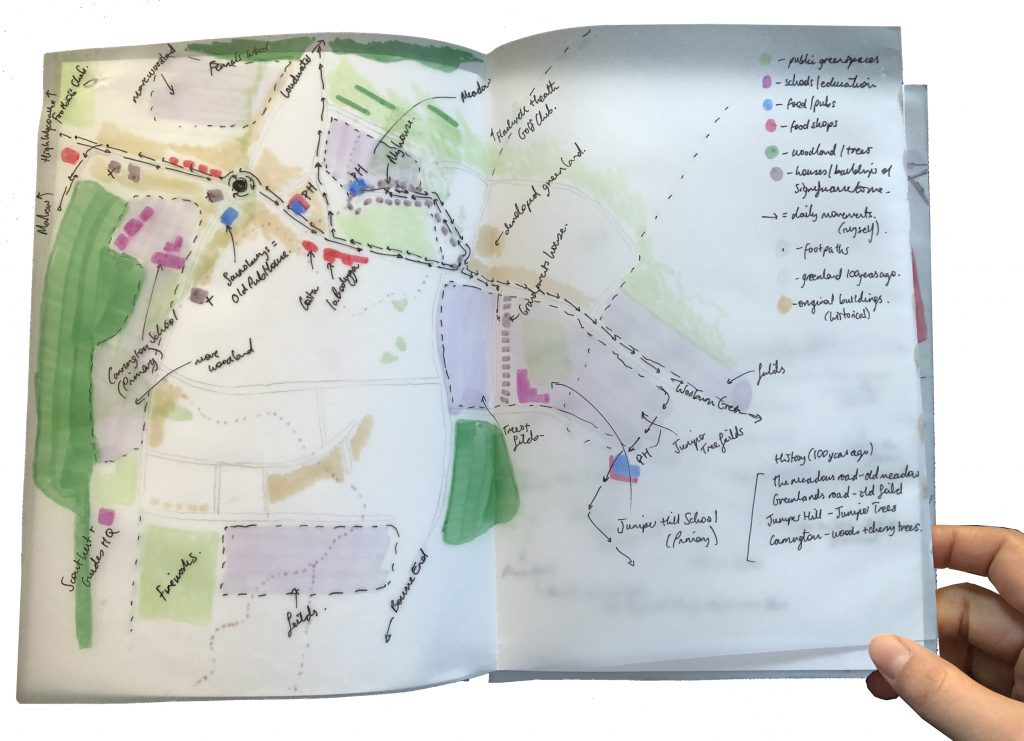 Football Club.
High Wycombe
Marlow
more woodland
Fennels Wood
Loudwater
Meadow
My house.
PH
PH
Flackwell Heath
Golf Club.
developed greenland
Sainsburys =
Old Pub/House.
Costa
Grandparents house.
Carrington School
(Primary)
more
woodland
Trees +
Wooburn Green
fields
Juniper
Tree
PH
Juniper Hill School
(Primary)
Scout hut +
Guides HQ
Fireworks.
Bourne End
- public greenspaces
- schools/education
- food/pubs
- food shops
- woodland/trees
- houses/buildings of
significance to me.
= daily movements.
(myself).
- footpaths
- greenland 100 years ago.
- original buildings
(historical)
History (100 years ago)
The meadows road - old meadow
Greenlands road - old feild
Juniper Hill - Juniper Trees
Carrington - wood + cherry trees.